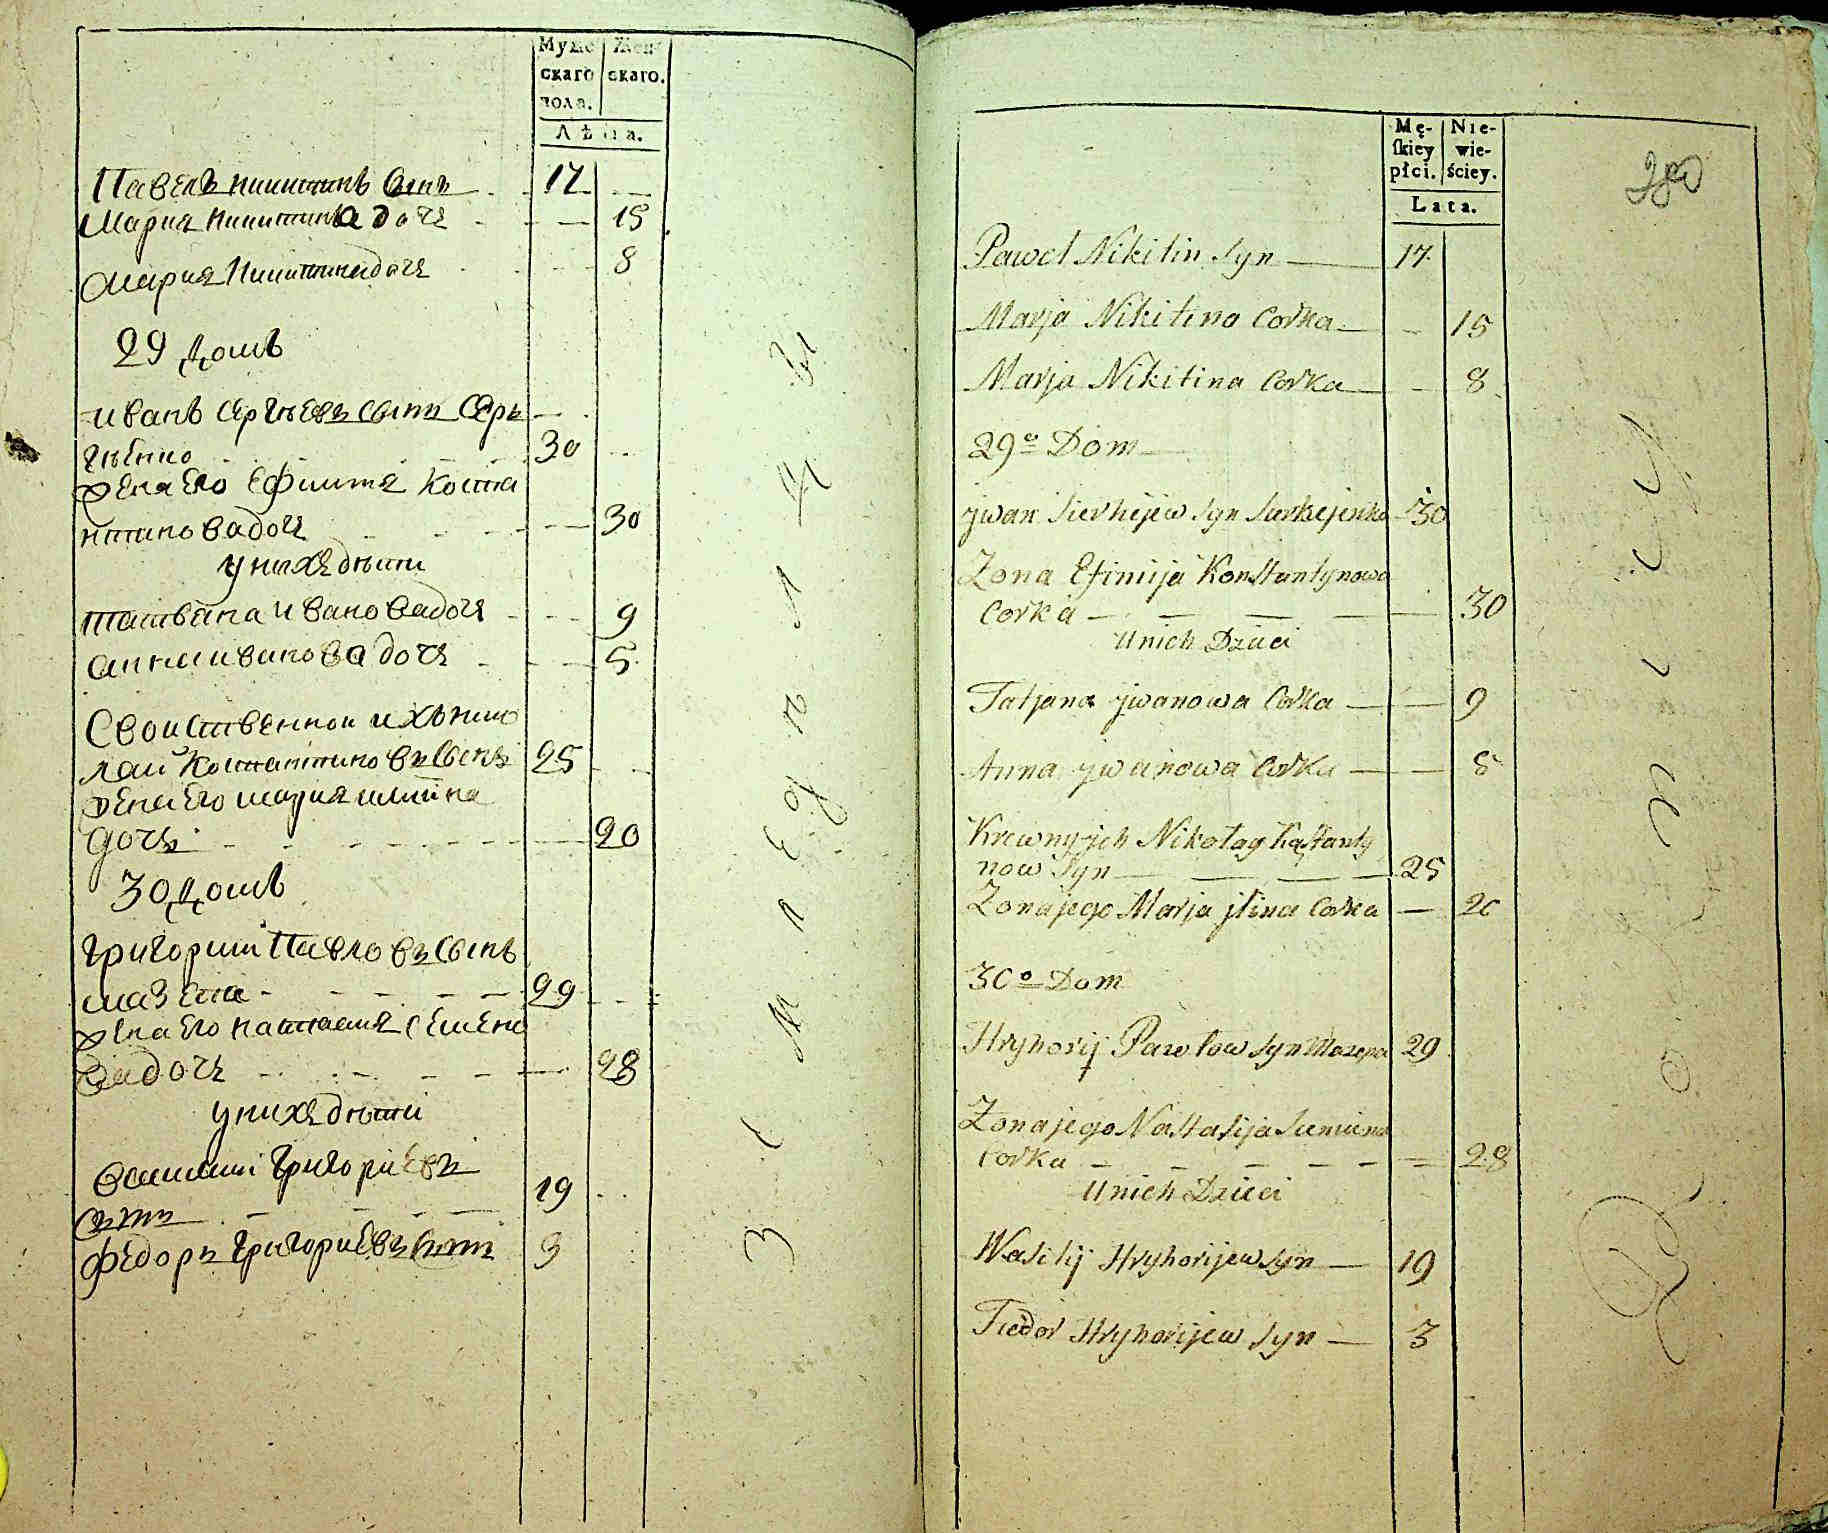 Муже
скаго
пола.
Жен
скаго.
Лѣта.
Павелъ Никитинъ сынъ 17
Мария Никитина дочь 15
Мария Никитина дочь 8
29 домъ
Иванъ Сергѣевъ сынъ Серъ
гѣенко 30
жена его Ефимия Коста
нтинова дочь 30
у нихъ дѣти
татьяна иванова дочь 9
анна иванова дочь 5
Свойственной ихъ нико
лай Костантиновъ сынъ 25
жена его мария ильина
дочь 20
30 домъ
григорий Павловъ сынъ
мазепа 29
жена его настасия семено
ва дочь 28
у нихъ дѣти
василий григориевъ
сынъ 19
федоръ григориевъ сынъ 3
Mę-
skiey
płci.
Nie-
wie-
ściey.
Lata.
280
Paweł Nikitin Syn 17
Marja Nikitina Corka 15
Marja Nikitina Corka 8
29º Dom
jwan Sierhijew Syn Serhejenko 30
Zona Efimija Konstantynowa
Corka 30
Unich Dzieci
Tatjana jwanowa Corka 9
Anna jwanowa Corka 5
Krewny jch Nikołay Kastanty
now Syn 25
Zona jego Marja jlina Corka 20
30º Dom
Hryhorij Pawłow Syn Mazepa 29
Zona jego Nastasija Siemiena
Corka 28
Unich Dzieci
Wasilij Hryhorijew Syn 19
Fiedor Hryhorijew Syn 3